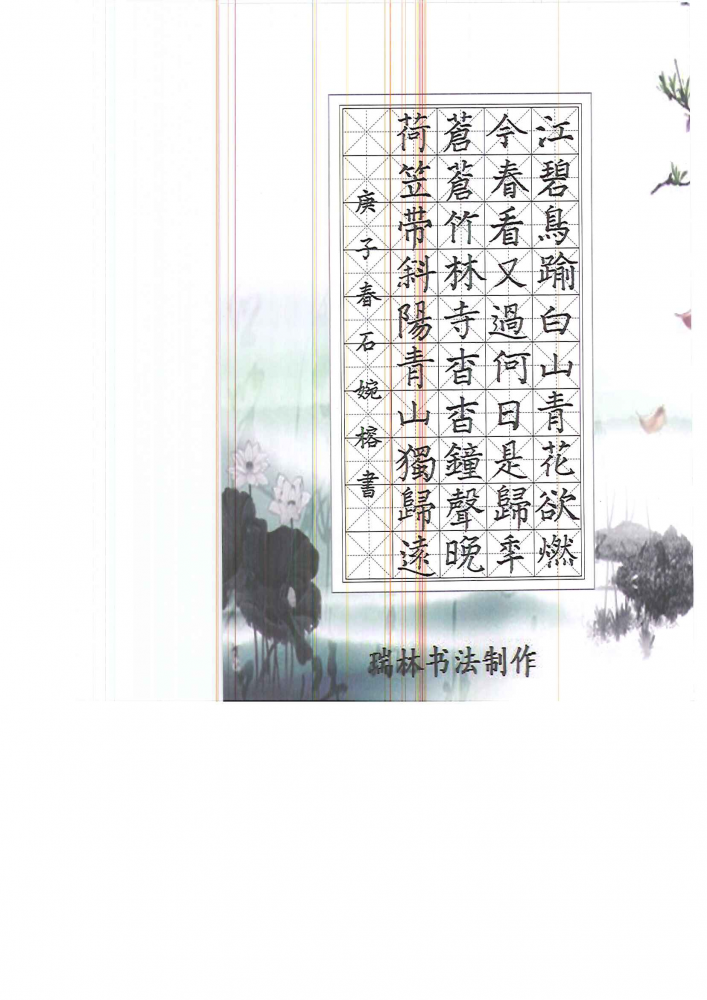 江碧鳥踰白山青花欲燃
今春看又過何日是歸季
蒼蒼竹林寺杳杳鐘聲晚
荷笠帶斜陽青山獨歸遠
庚子春石婉榕書
瑞林书法制作